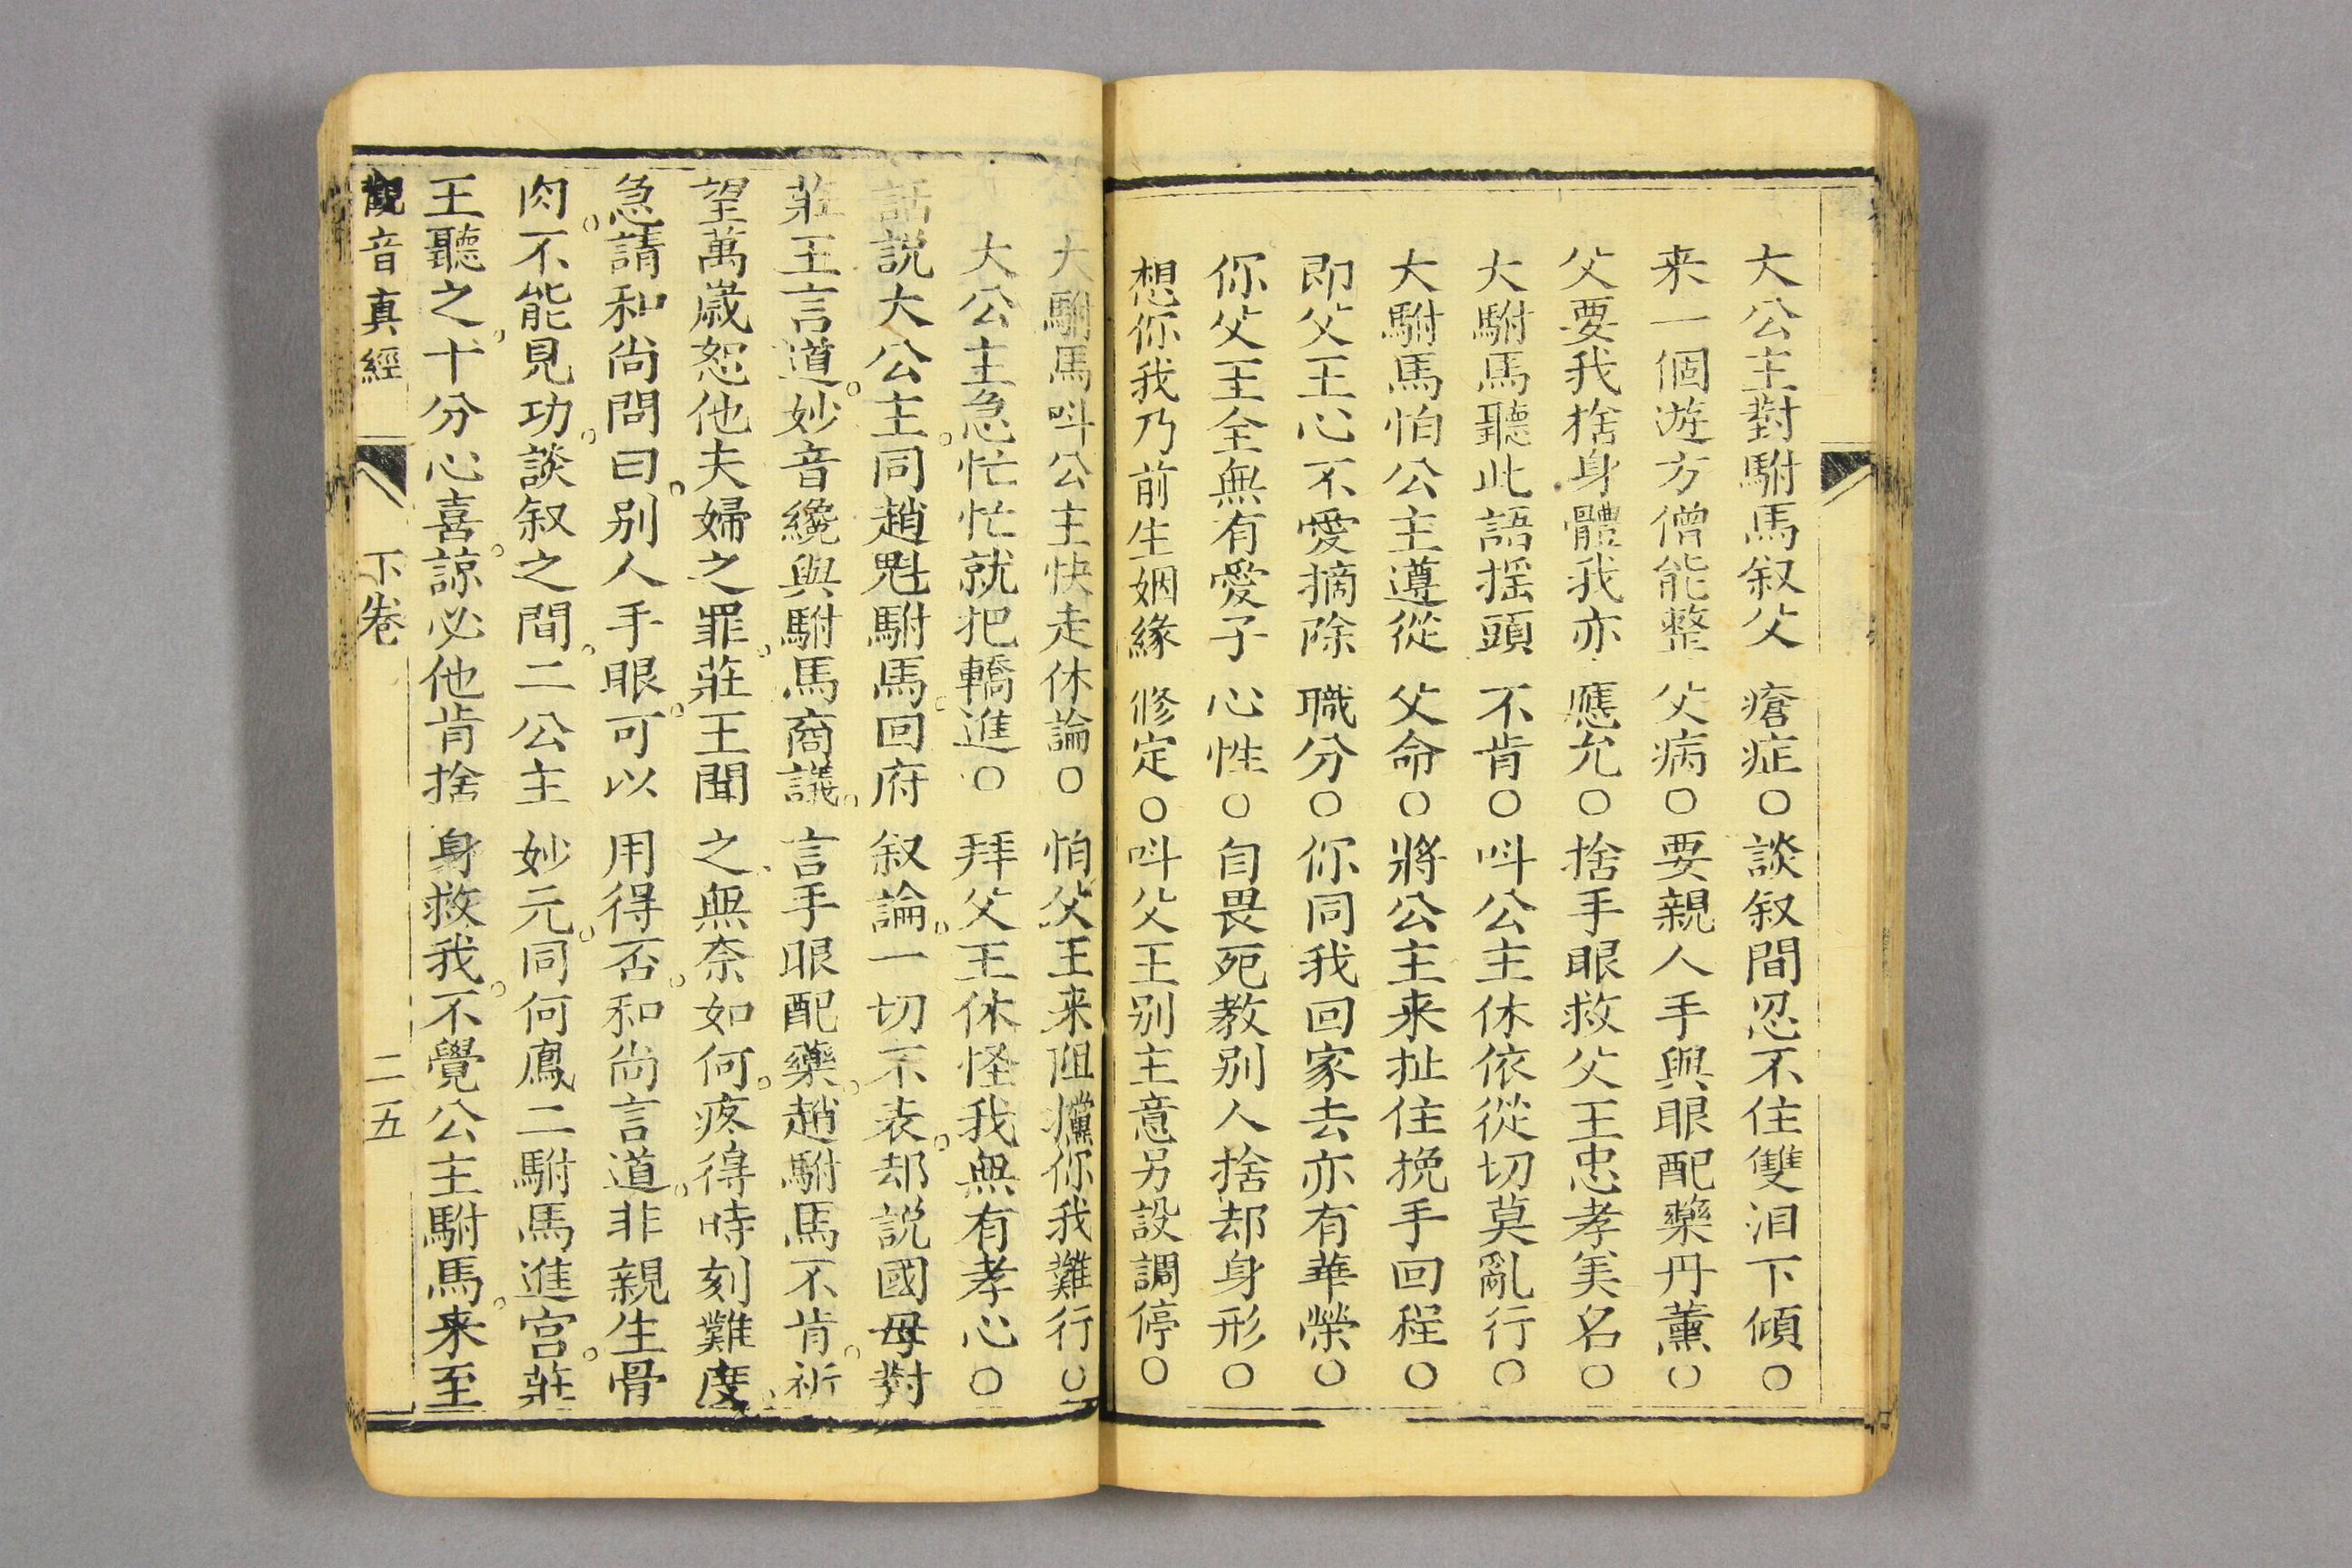 大公主對駙馬叙父瘡症○談叙間忍不住雙泪下傾○
来一個遊方僧能整父病○要親人手與眼配藥丹薰○
父要我捨身體我亦應允○捨手眼救父王忠孝美名○
大駙馬聽此語揺頭不肯○呌公主休依從切莫亂行○
大駙馬怕公主遵從父命○將公主来扯住挽手回程○
即父王心不愛摘除職分○你同我回家去亦有華榮○
你父王全無有愛子心性○自畏死教别人捨却身形○
想你我乃前生姻緣修定○呌父王别主意另設調停○
大駙馬呌公主快走休論○怕父王来阻攩你我難行○
大公主急忙忙就把轎進○拜父王休怪我無有孝心○
話説大公主。同趙魁駙馬。回府叙論。一切不表。却説國母對
莊王言道。妙音纔與駙馬商議。言手眼配藥。趙駙馬不肯。祈
望萬歲恕他夫婦之罪。莊王聞之。無奈如何。疼得時刻難度。
急請和尚問曰。别人手眼。可以用得否。和尚言道。非親生骨
肉。不能見功。談叙之間。二公主妙元。同何鳳二駙馬進宫。莊
王聽之。十分心喜。諒必他肯捨身救我。不覺公主駙馬。来至
觀音真經 下卷 二五